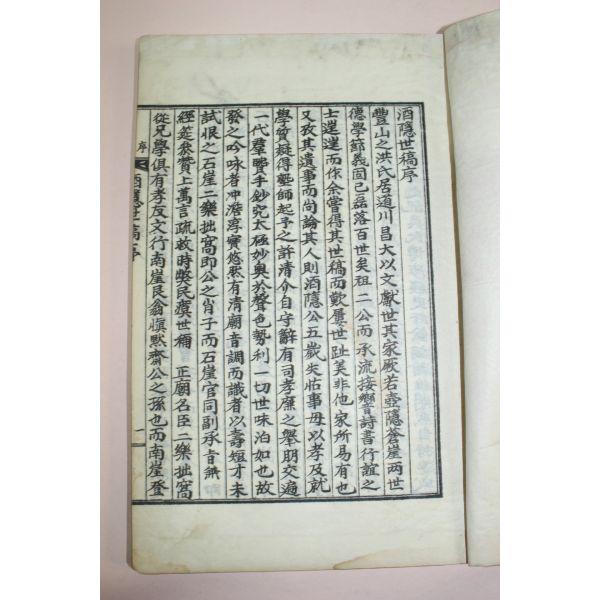 酒隱世稿序
豊山之洪氏居道川昌大以文獻世其家厥若壺隱蒼崖两世
德學節義固已磊落百世矣祖二公而承流接響詩書行誼之
士遑遑而作余嘗得其世稿而歎曩世趾美非他家所易有也
又孜其遺事而尚論其人則酒隱公五歲失怙事母以孝及就
學質疑得塾師起予之許清介自守辭有司孝廉之舉朋交遍
一代羣賢手鈔究太極妙奥於聲色勢利一切世味泊如也故
發之吟咏者冲澹淳實悠然有清廟音調而識者以壽短才未
試恨之石崖二樂拙窩即公之肖子而石崖官同副承旨
經筵參贊上萬言疏救時獘民瘼世稱 正廟名臣二樂拙窩
從兄學俱有孝友文行南崖艮翁愼默齋公之孫也而南崖登
序
酒隱世稿序
一